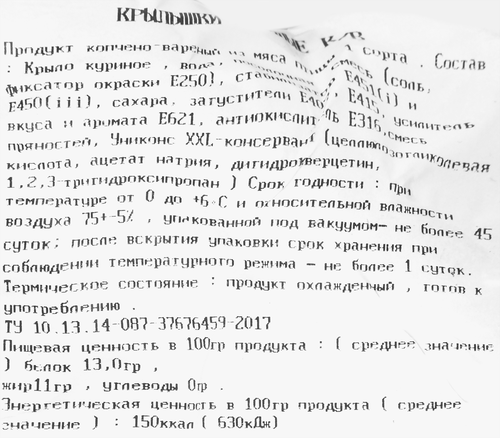 КРЫЛЫШКИ К/В
Продукт копчено-вареный из мяса 1 сорта . Состав
: Крыло куриное , вода, смесь (соль,
фиксатор окраски Е250), Е451(i) и
Е450(iii), сахара, загустители Е415, усилитель
вкуса и аромата Е621, антиокислитель Е316,смесь
пряностей, Униконс XXL-консервант (целлюлозогликолевая
кислота, ацетат натрия, дигидрокверцетин,
1,2,3-тригидроксипропан ) Срок годности : при
температуре от 0 до +6 С и относительной влажности
воздуха 75+-5% , упакованной под вакуумом- не более 45
суток; после вскрытия упаковки срок хранения при
соблюдении температурного режима - не более 1 суток.
Термическое состояние : продукт охлажденный , готов к
употреблению .
ТУ 10.13.14-087-37676459-2017
Пищевая ценность в 100гр продукта : ( среднее значение
) белок 13,0гр ,
жир11гр , углеводы 0гр .
Энергетическая ценность в 100гр продукта ( среднее
значение ) : 150ккал ( 630кДж)